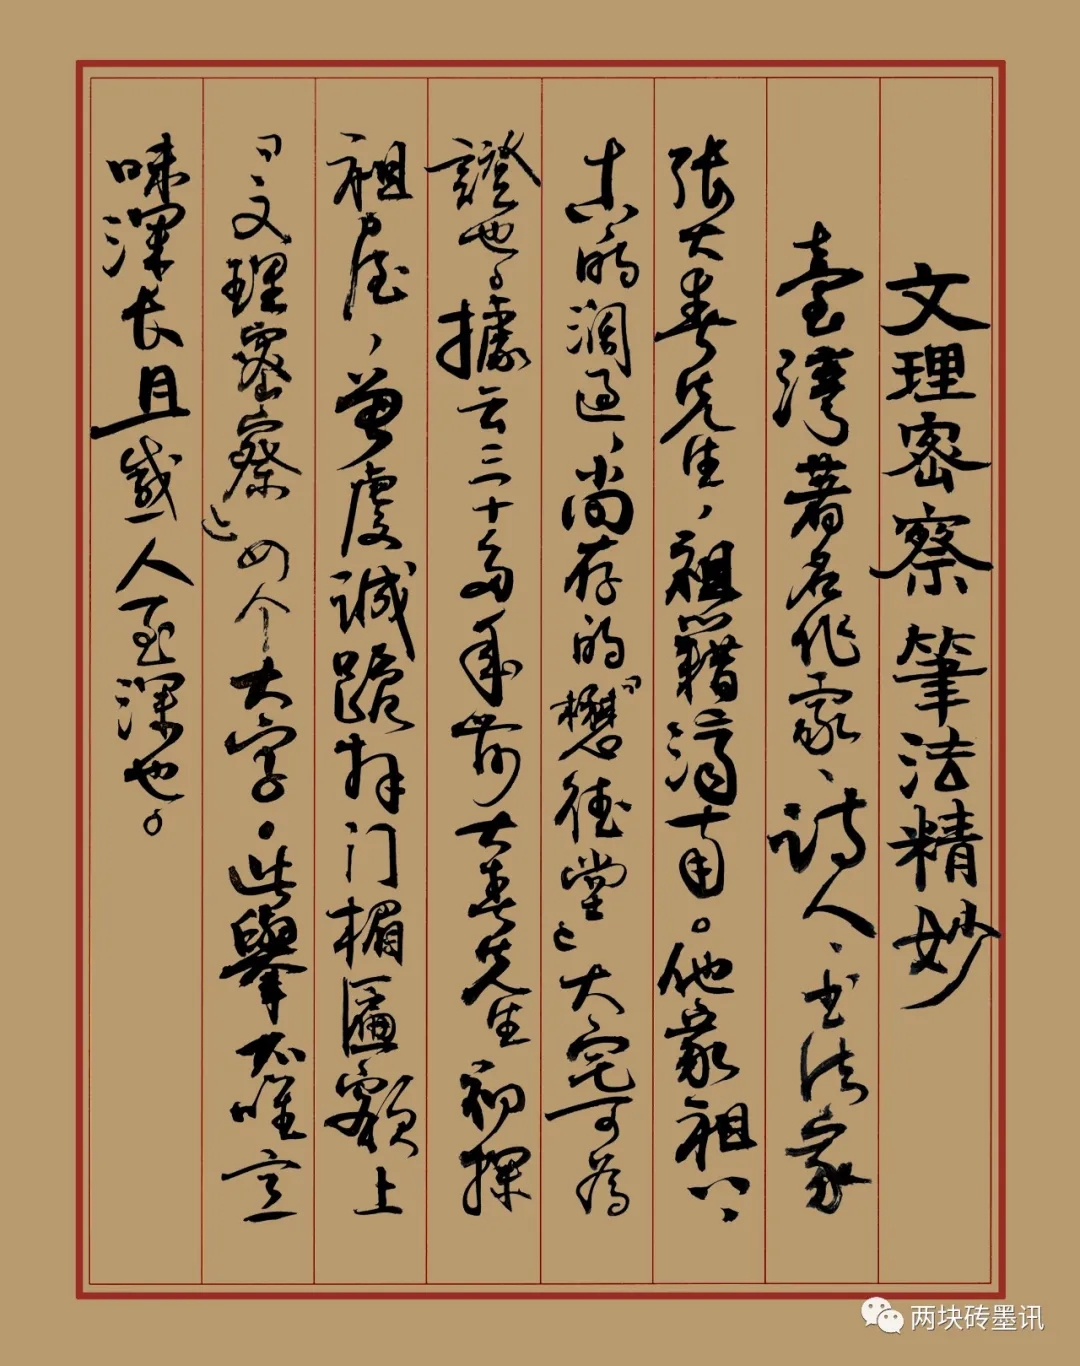 文理密察 筆法精妙
臺灣著名作家、詩人、书法家
张大春先生，祖籍濟南。他家祖上、
十的阔过，尚存的「懋德堂」大宅可為
證也。據云三十多年前大春先生初探
祖屋，曾虔诚跪拜门楣匾额上
「文理密察」四个大字。此舉不唯意
味深长且感人至深也。
两块砖墨讯